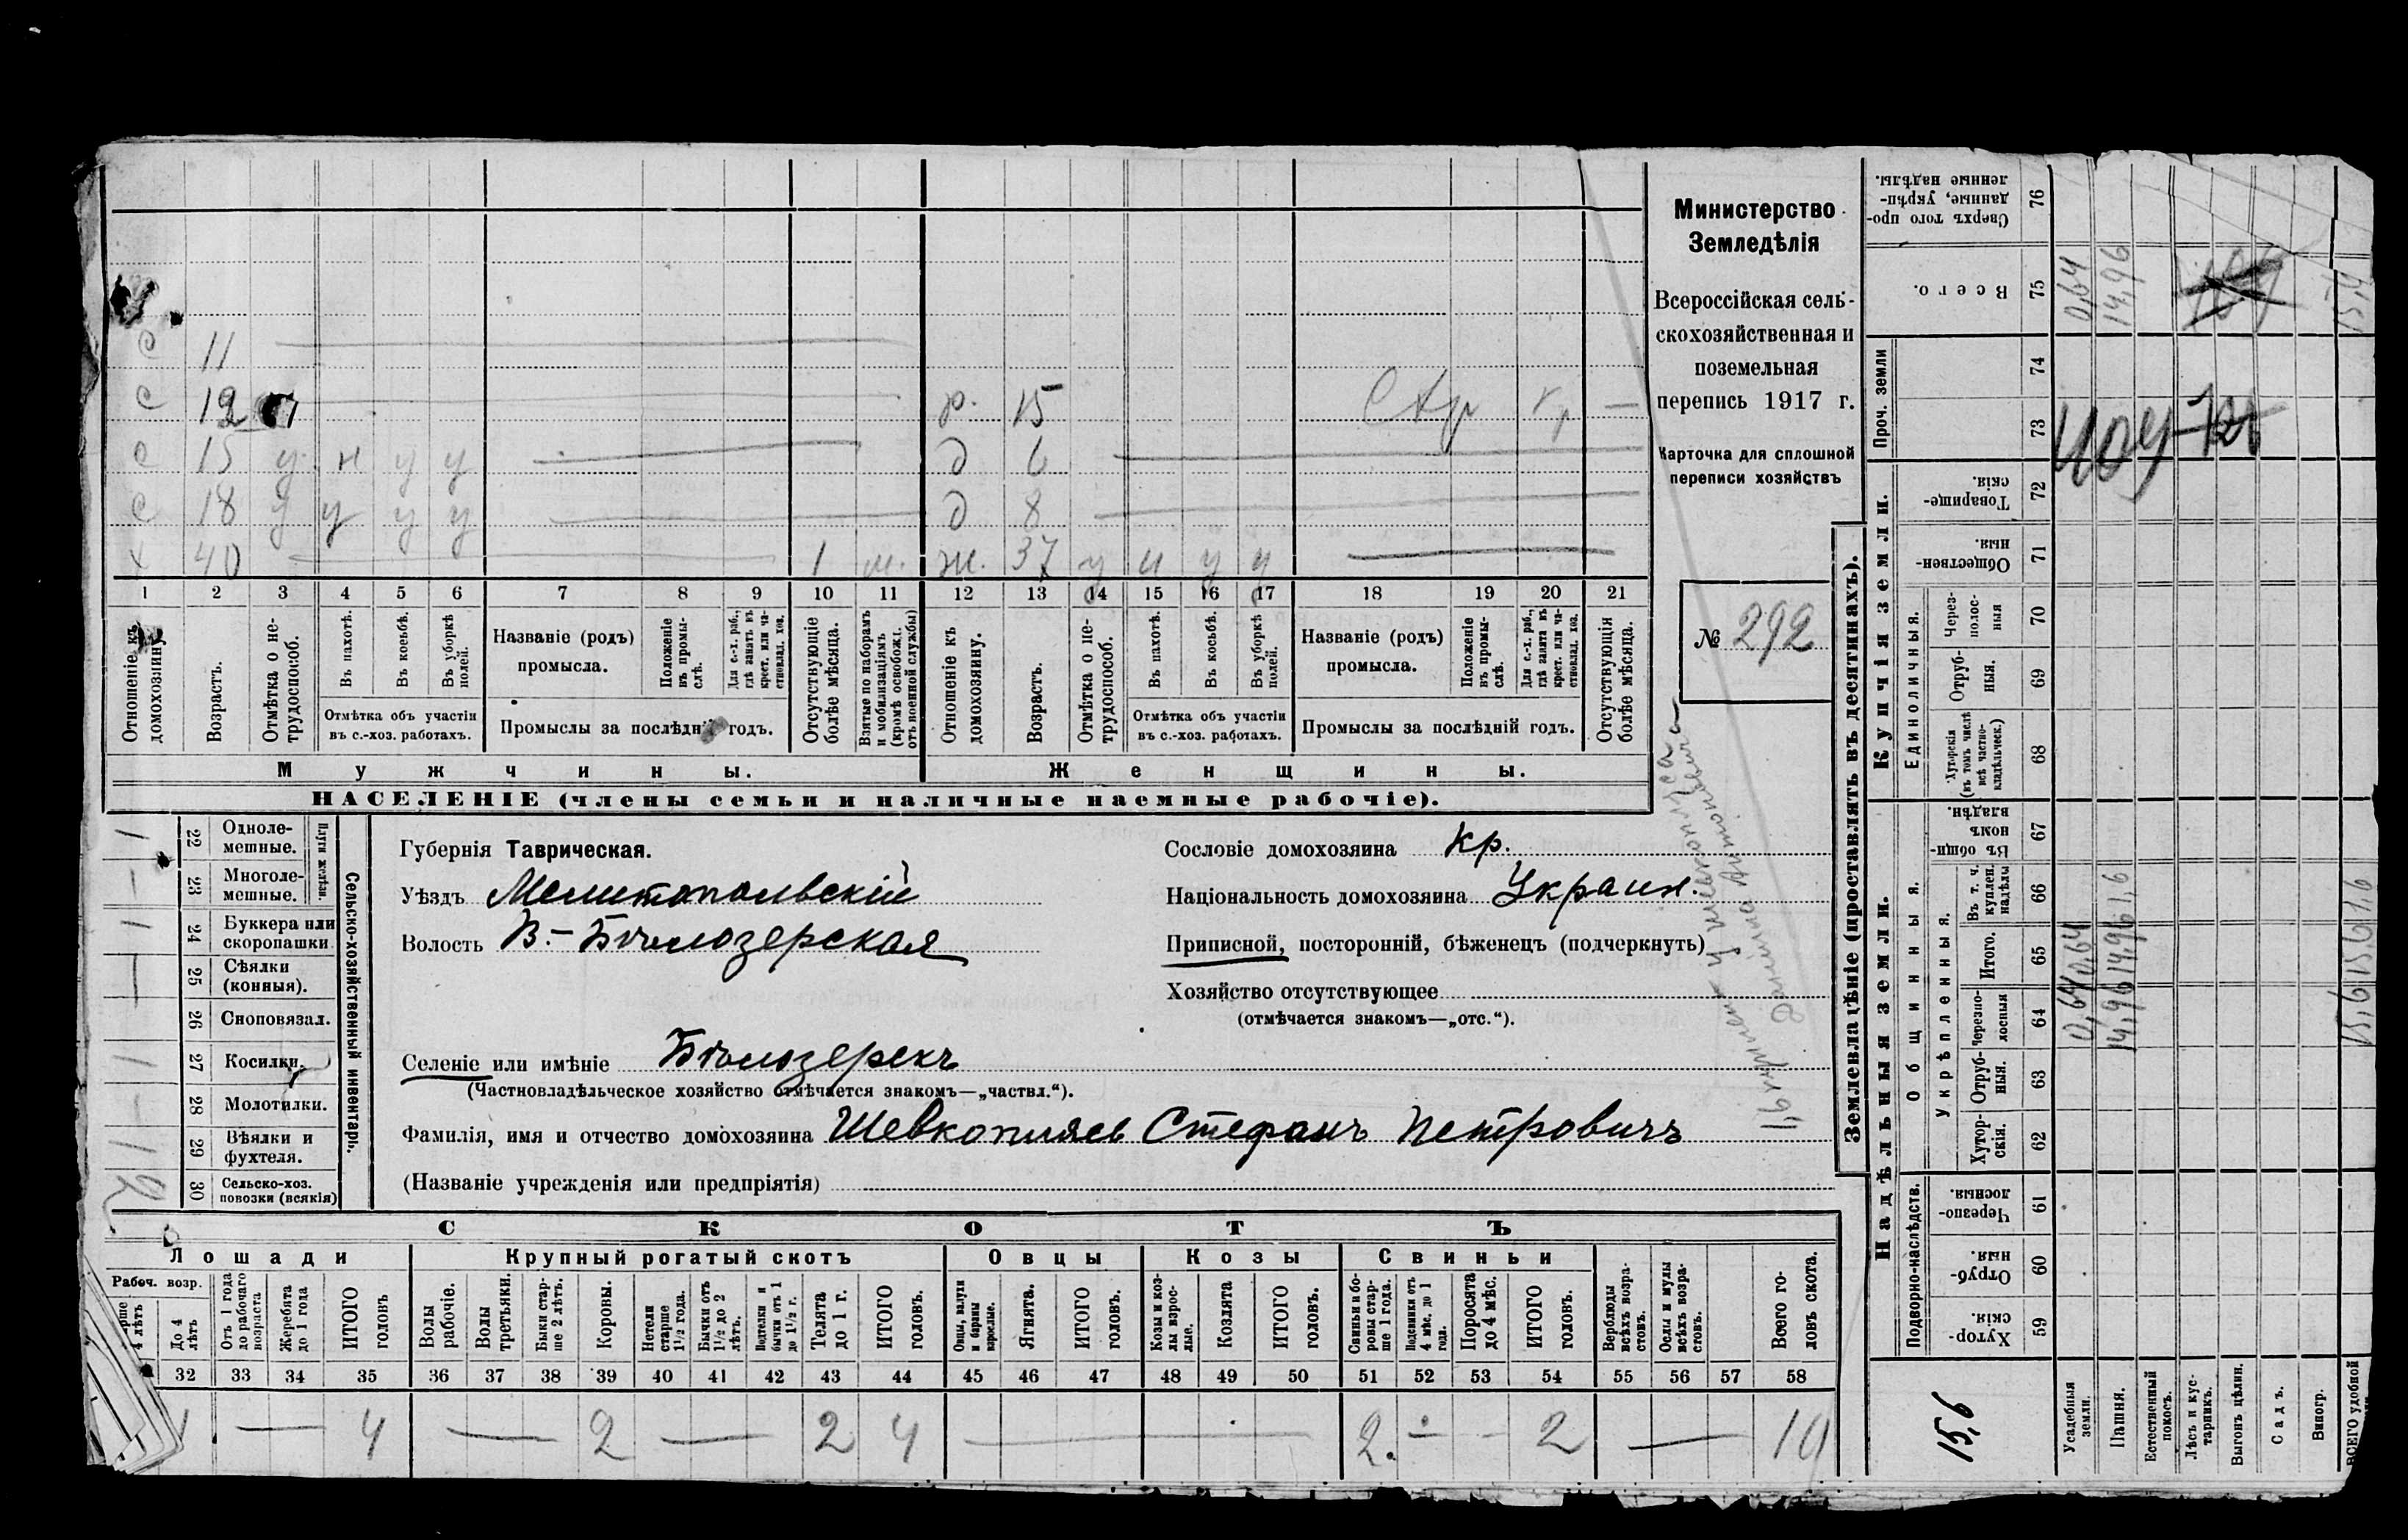 Министерство
Земледѣлія
Всероссійская сель-
скохозяйственная и
поземельная
перепись 1917 г.
Карточка для сплошной
переписи хозяйствъ
№ 292
с 11
с 12
с 15 у н у у
с 18 у у у у
х 40 1 м.
р. 15 Стр
д 6
д 8
ж. 37 у н у у
1 2 3 4 5 6 7 8 9 10 11 12 13 14 15 16 17 18 19 20 21
Отношеніе къ домохозяину.
Возрастъ.
Отмѣтка о не-трудоспособ.
Въ пахотѣ.
Въ косьбѣ.
Въ уборкѣ полей.
Отмѣтка объ участіи
въ с.-хоз. работахъ.
Названіе (родъ)
промысла.
Положеніе въ промы-слѣ.
Для с.-х. раб., гдѣ занятъ въ крест. или ча-стновлад. хоз.
Промыслы за послѣдній годъ.
Отсутствующіе болѣе мѣсяца.
Взятые по наборамъ и мобилизаціямъ (кромѣ освобожд. отъ военной службы)
Отношеніе къ домохозяину.
Возрастъ.
Отмѣтка о не-трудоспособ.
Въ пахотѣ.
Въ косьбѣ.
Въ уборкѣ полей.
Отмѣтка объ участіи
въ с.-хоз. работахъ.
Названіе (родъ)
промысла.
Положеніе въ промы-слѣ.
Для с.-х. раб., гдѣ занята въ крест. или ча-стновлад. хоз.
Промыслы за послѣдній годъ.
Отсутствующія болѣе мѣсяца.
Мужчины.
Женщины.
НАСЕЛЕНІЕ (члены семьи и наличные наемные рабочіе).
Сельско-хозяйственный инвентарь.
Плуги желѣзн.
22 Одноле-мешные. 1
23 Многоле-мешные. —
24 Буккера или скоропашки 1
25 Сѣялки (конныя). —
26 Сноповязал.
27 Косилки. 1
28 Молотилки. -
29 Вѣялки и фухтеля. 1
30 Сельско-хоз. повозки (всякія) 2
Губернія Таврическая.
Уѣздъ Мелитопольскій
Волость В.-Бѣлозерская
Селеніе или имѣніе Бѣлозерскъ
(Частновладѣльческое хозяйство отмѣчается знакомъ—„частвл.“).
Фамилія, имя и отчество домохозяина Шевкопляс Стефанъ Петровичъ
(Названіе учрежденія или предпріятія)
Сословіе домохозяина кр.
Національность домохозяина Украин.
Приписной, посторонній, бѣженецъ (подчеркнуть)
Хозяйство отсутствующее
(отмѣчается знакомъ—„отс.“).
СКОТЪ
Лошади
Крупный рогатый скотъ
Овцы
Козы
Свиньи
Рабоч. возр.
4 лѣтъ
До 4 лѣтъ
Отъ 1 года до рабочаго возраста
Жеребята до 1 года
ИТОГО головъ
Волы рабочіе.
Волы третьяки.
Быки стар-ше 2 лѣтъ.
Коровы.
Нетели старше 1½ года.
Бычки отъ 1½ до 2 лѣтъ.
Подтелки и бычки отъ 1 до 1½ г.
Телята до 1 г.
ИТОГО головъ.
Овцы, валухи и бараны взрослые.
Ягнята.
ИТОГО головъ.
Козы и коз-лы взрос-лые.
Козлята
ИТОГО головъ.
Свиньи и бо-ровы стар-ше 1 года.
Подсвинки отъ 4 мѣс. до 1 года.
Поросята до 4 мѣс.
ИТОГО головъ.
Верблюды всѣхъ возра-стовъ.
Ослы и мулы всѣхъ возра-стовъ.
Всего го-ловъ скота.
32 33 34 35 36 37 38 39 40 41 42 43 44 45 46 47 48 49 50 51 52 53 54 55 56 57 58
— 4 — 2 — 2 4 — 2. - - 2 — 10
Землевладѣніе (проставлять въ десятинахъ).
Надѣльныя земли.
Купчія земли.
Проч. земли
Подворно-наслѣдств.
Общинныя.
Укрѣпленныя.
Единоличныя.
Хутор-скія. 59
Отруб-ныя. 60
Черезпо-лосныя. 61
Хутор-скія. 62
Отруб-ныя. 63
Черезпо-лосныя 64
Итого. 65
Въ т. ч. куплен. надѣлы 66
Въ общин-номъ владѣн. 67
Хуторскія (въ томъ числѣ всѣ частно-владѣльческ.) 68
Отруб-ныя. 69
Через-полос-ныя 70
Обществен-ныя. 71
Товарище-скія. 72
73
74
Всего. 75
Сверхъ того про-данные, укрѣп-ленные надѣлы. 76
15,6
Усадебныя земли. 0,64 0,64 0,64
Пашня. 14,96 14,96 1,6 14,96
Естественный покосъ.
Лѣсъ и кус-тарникъ.
Выгонъ цѣлин.
Садъ.
Виногр.
ВСЕГО удобной 15,6 15,6 1,6